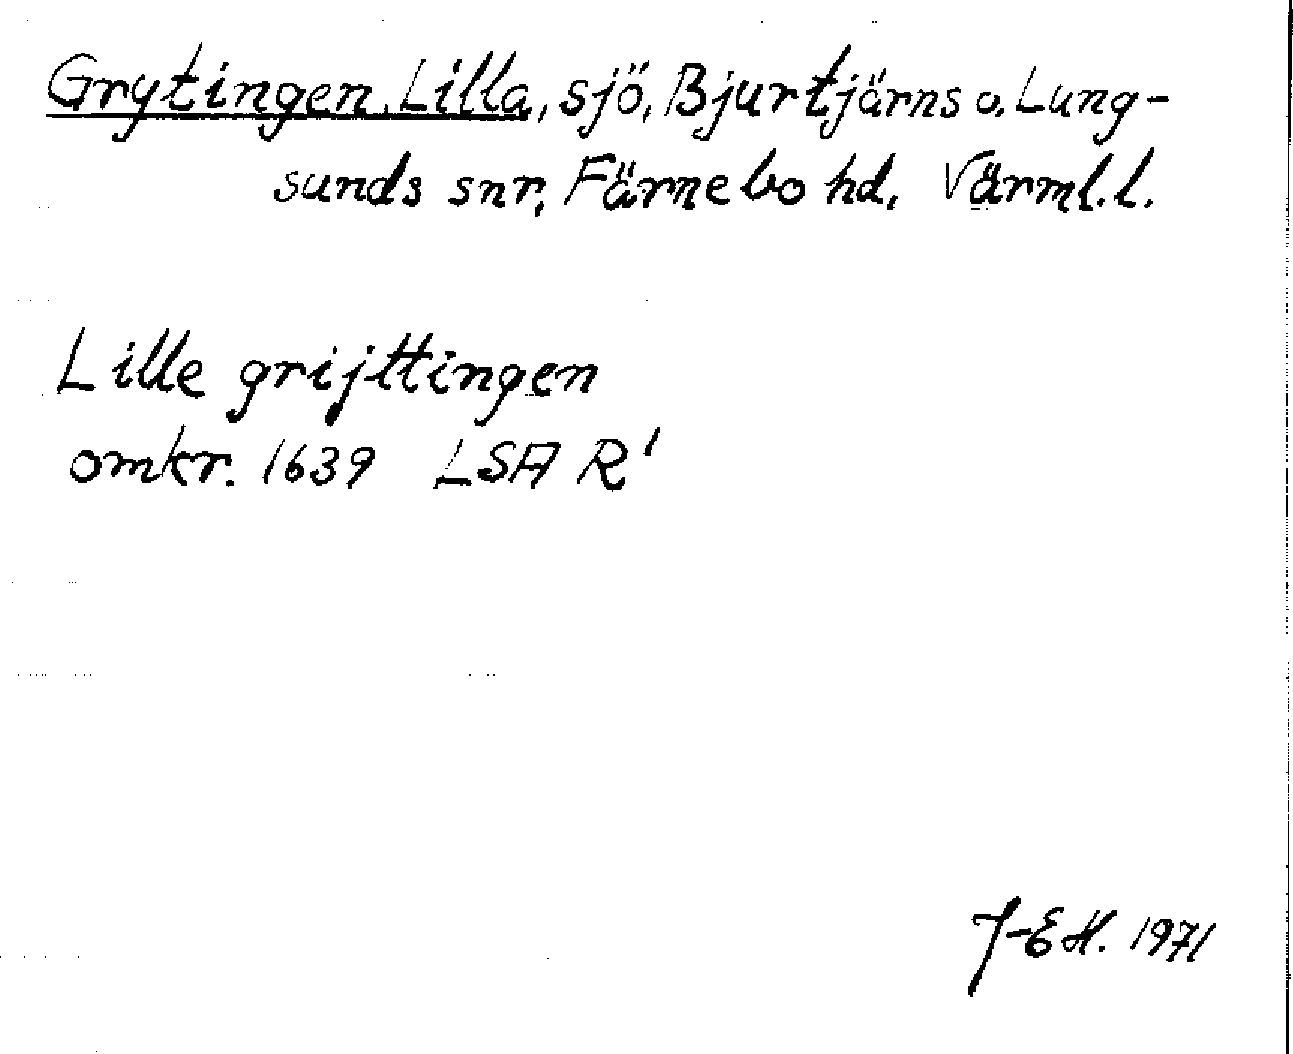 Grytingen, Lilla, sjö, Bjurtjärns o. Lung-
sunds snr, Färnebo hd, Värml.l.
Lille grijttingen
omkr. 1639 LSA R¹
J-EH. 1971